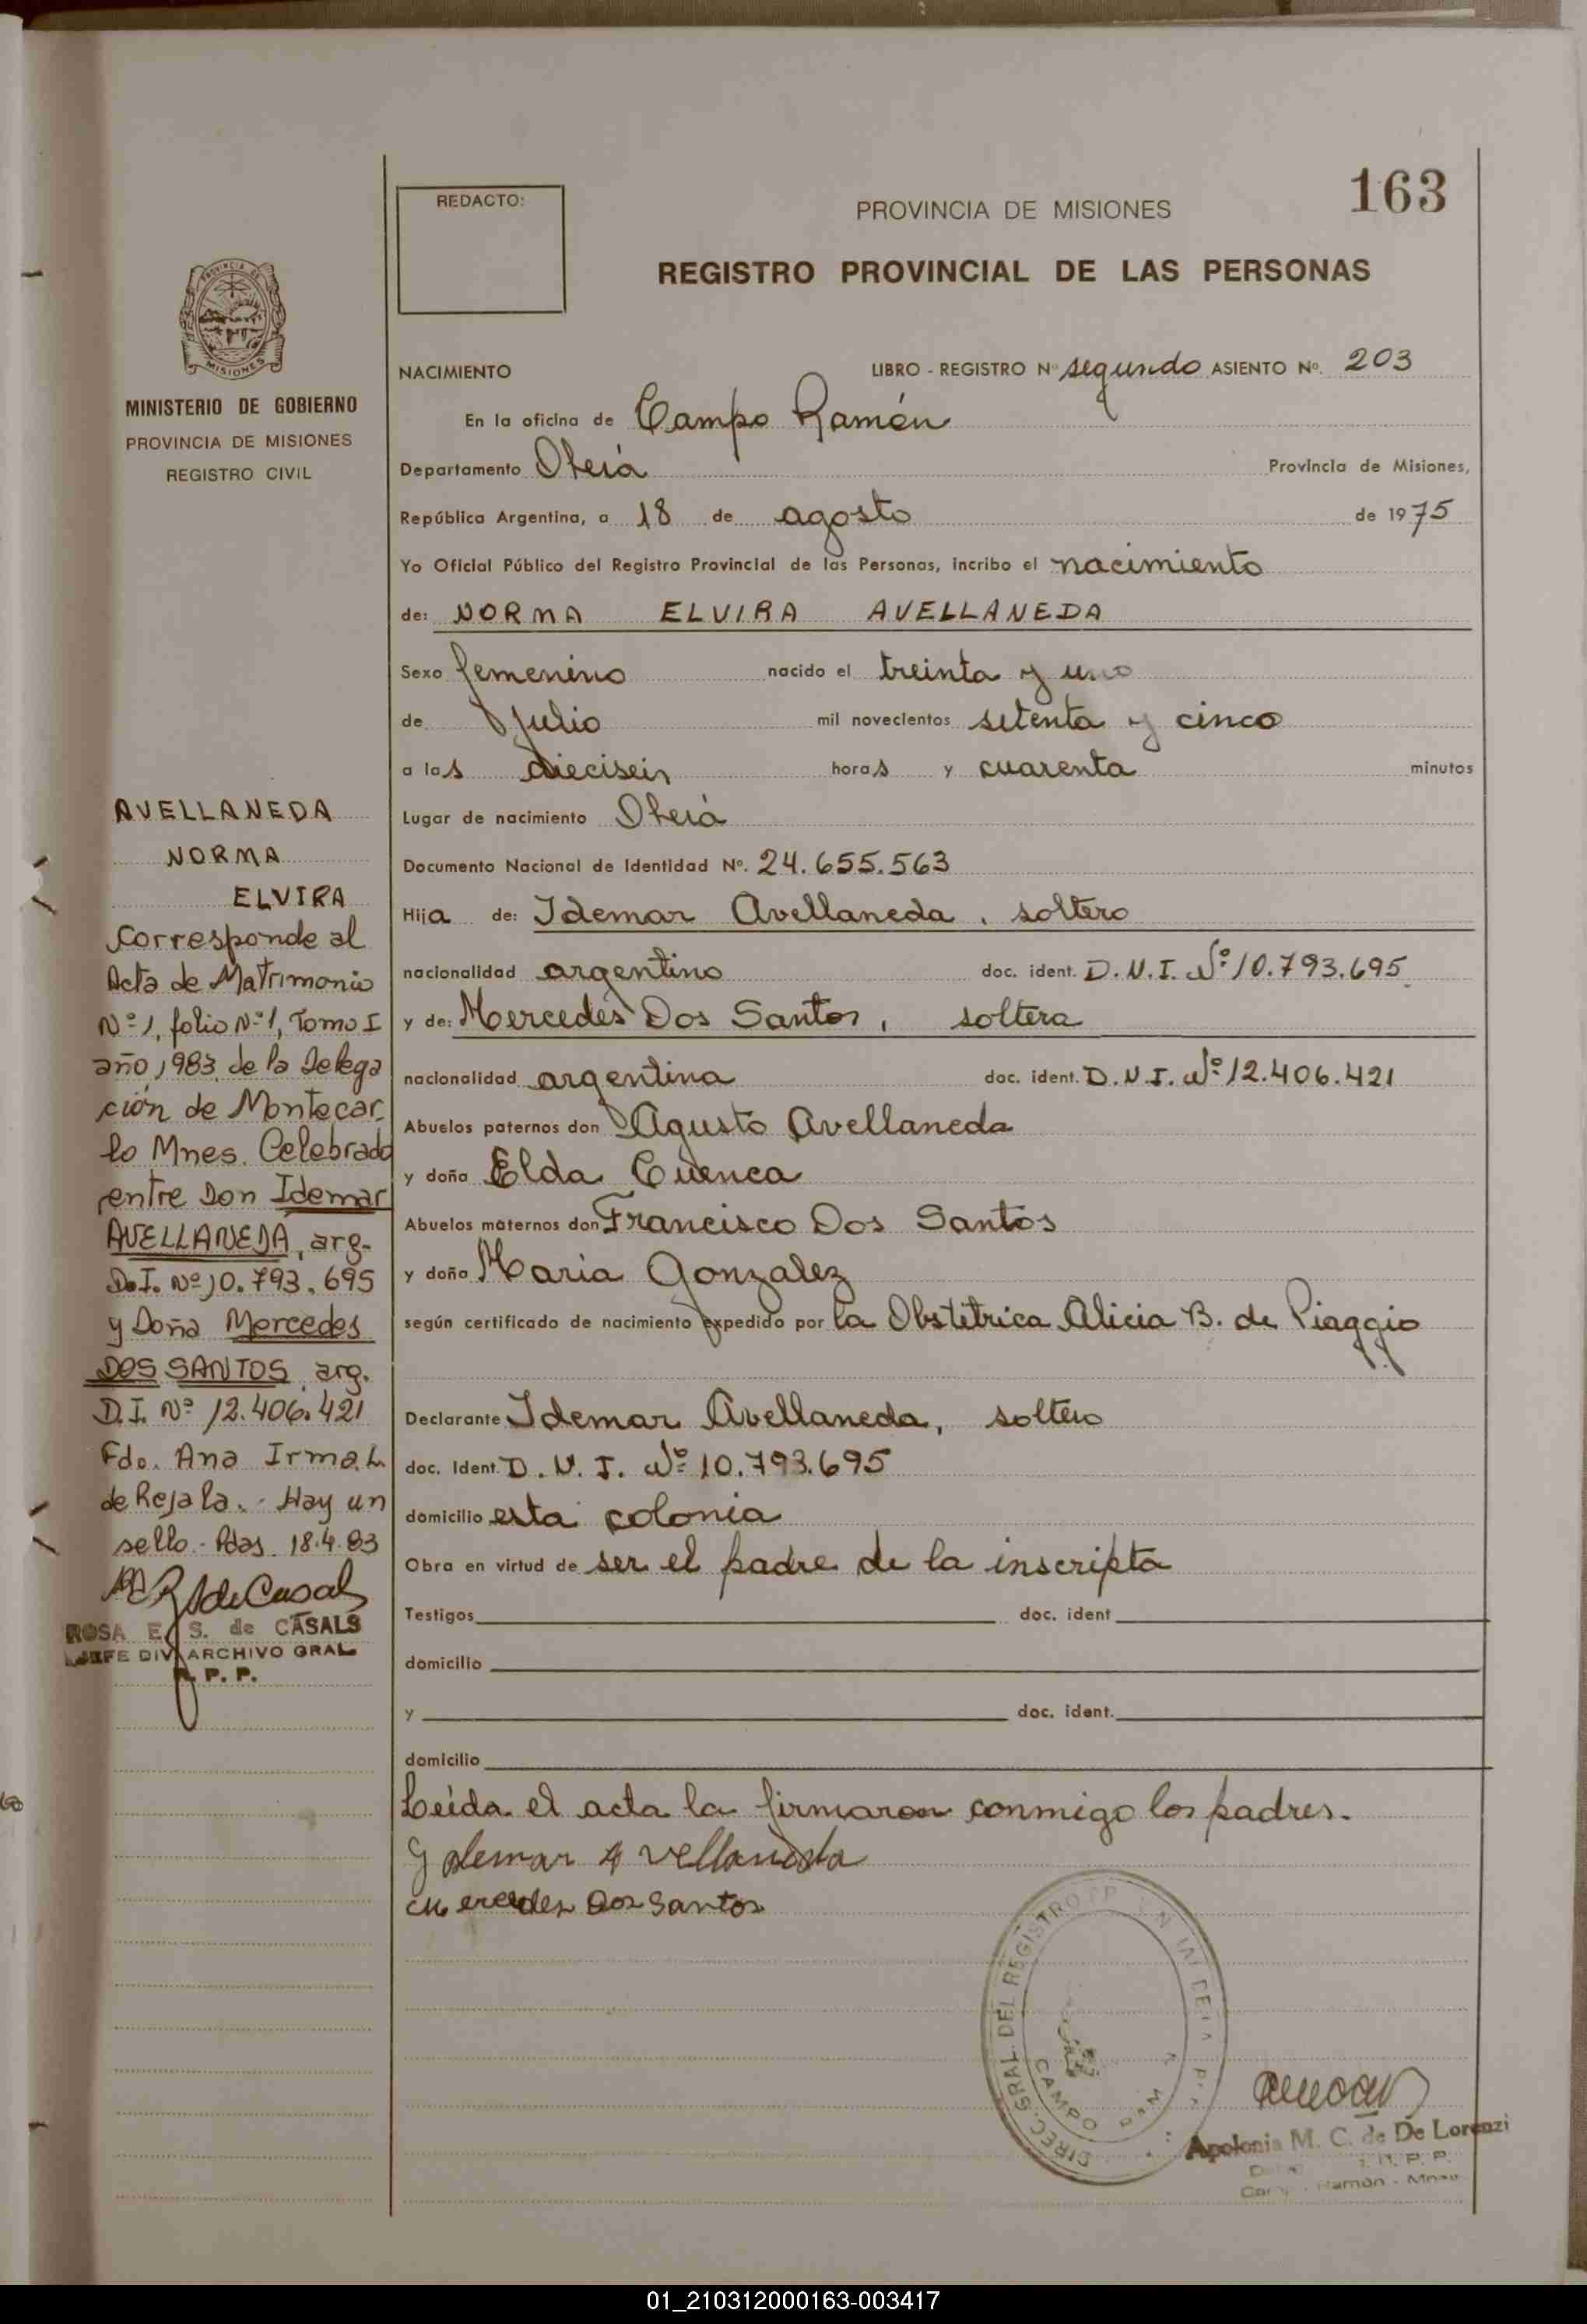 163
REDACTO:
PROVINCIA DE MISIONES
REGISTRO PROVINCIAL DE LAS PERSONAS
MINISTERIO DE GOBIERNO
PROVINCIA DE MISIONES
REGISTRO CIVIL
NACIMIENTO LIBRO - REGISTRO Nº segundo ASIENTO Nº. 203
En la oficina de Campo Ramón
Departamento Oberá Provincia de Misiones,
República Argentina, a 18 de agosto de 1975
Yo Oficial Público del Registro Provincial de las Personas, incribo el nacimiento
de: NORMA ELVIRA AVELLANEDA
Sexo femenino nacido el treinta y uno
de Julio mil novecientos setenta y cinco
a las dieciseis horas y cuarenta minutos
Lugar de nacimiento Oberá
Documento Nacional de Identidad Nº. 24.655.563
Hija de: Idemar Avellaneda, soltero
nacionalidad argentino doc. ident. D.N.I. Nº 10.793.695
y de: Mercedes Dos Santos, soltera
nacionalidad argentina doc. ident. D.N.I. Nº 12.406.421
Abuelos paternos don Agusto Avellaneda
y doña Elda Cuenca
Abuelos maternos don Francisco Dos Santos
y doña María Gonzalez
según certificado de nacimiento expedido por la Obstétrica Alicia B. de Piaggio
Declarante Idemar Avellaneda, soltero
doc. Ident. D.N.I. Nº 10.793.695
domicilio esta colonia
Obra en virtud de ser el padre de la inscripta
Testigos doc. ident
domicilio
y doc. ident.
domicilio
Leída el acta la firmaron conmigo los padres.
Idemar Avellaneda
Mercedes Dos Santos
AVELLANEDA
NORMA
ELVIRA
Corresponde al
Acta de Matrimonio
Nº 1, folio Nº 1, Tomo I
año 1983 de la Delega
ción de Montecar
lo Mnes. Celebrado
entre Don Idemar
AVELLANEDA, arg.
D.I. Nº 10.793.695
y Doña Mercedes
DOS SANTOS arg.
D.I. Nº 12.406.421
Fdo. Ana Irma L.
de Rejala.- Hay un
sello.- Pdas. 18.4.83
ROSA E. S. de CASALS
JEFE DIV. ARCHIVO GRAL
R. P. P.
DIREC. GRAL. DEL REGISTRO
CAMPO
Apolonia M. C. de De Lorenzi
R. P. P.
Ramón - Mnes
01_210312000163-003417